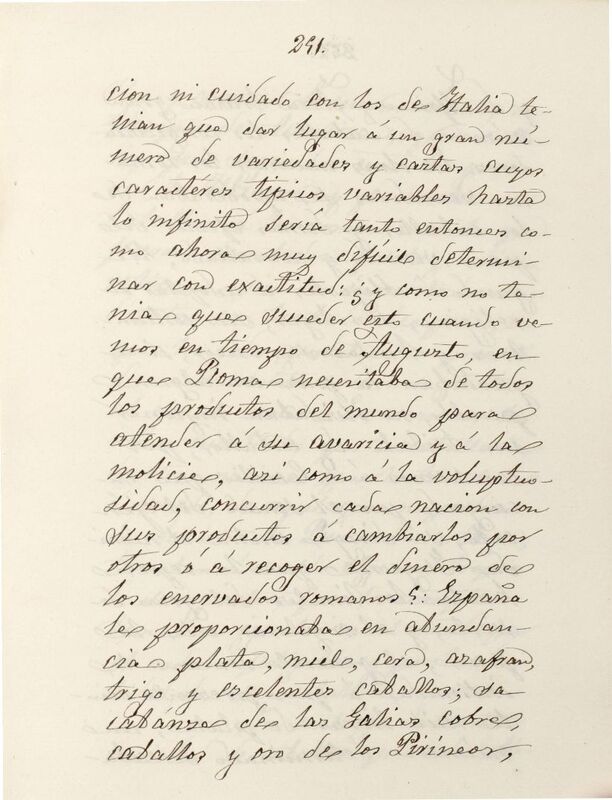 251.
cion ni cuidado con los de Italia te-
nian que dar lugar á un gran nú-
mero de variedades y castas cuyos
caractéres típicos variables hasta
lo infinito sería tanto entonces co-
mo ahora muy difícil determi-
nar con exactitud: ¿y como no te-
nia que suceder esto cuando ve-
mos en tiempo de Augusto, en
que Roma necesitaba de todos
los productos del mundo para
atender á su avaricia y á la
molicie, asi como á la voluptuo-
sidad, concurrir cada nacion con
sus productos á cambiarlos por
otros ó á recoger el dinero de
los enervados romanos?: España
le proporcionaba en abundan-
cia plata, miel, cera, azafran,
trigo y escelentes caballos; sa
cabánse de las Galias cobre,
caballos y oro de los Pirineos,